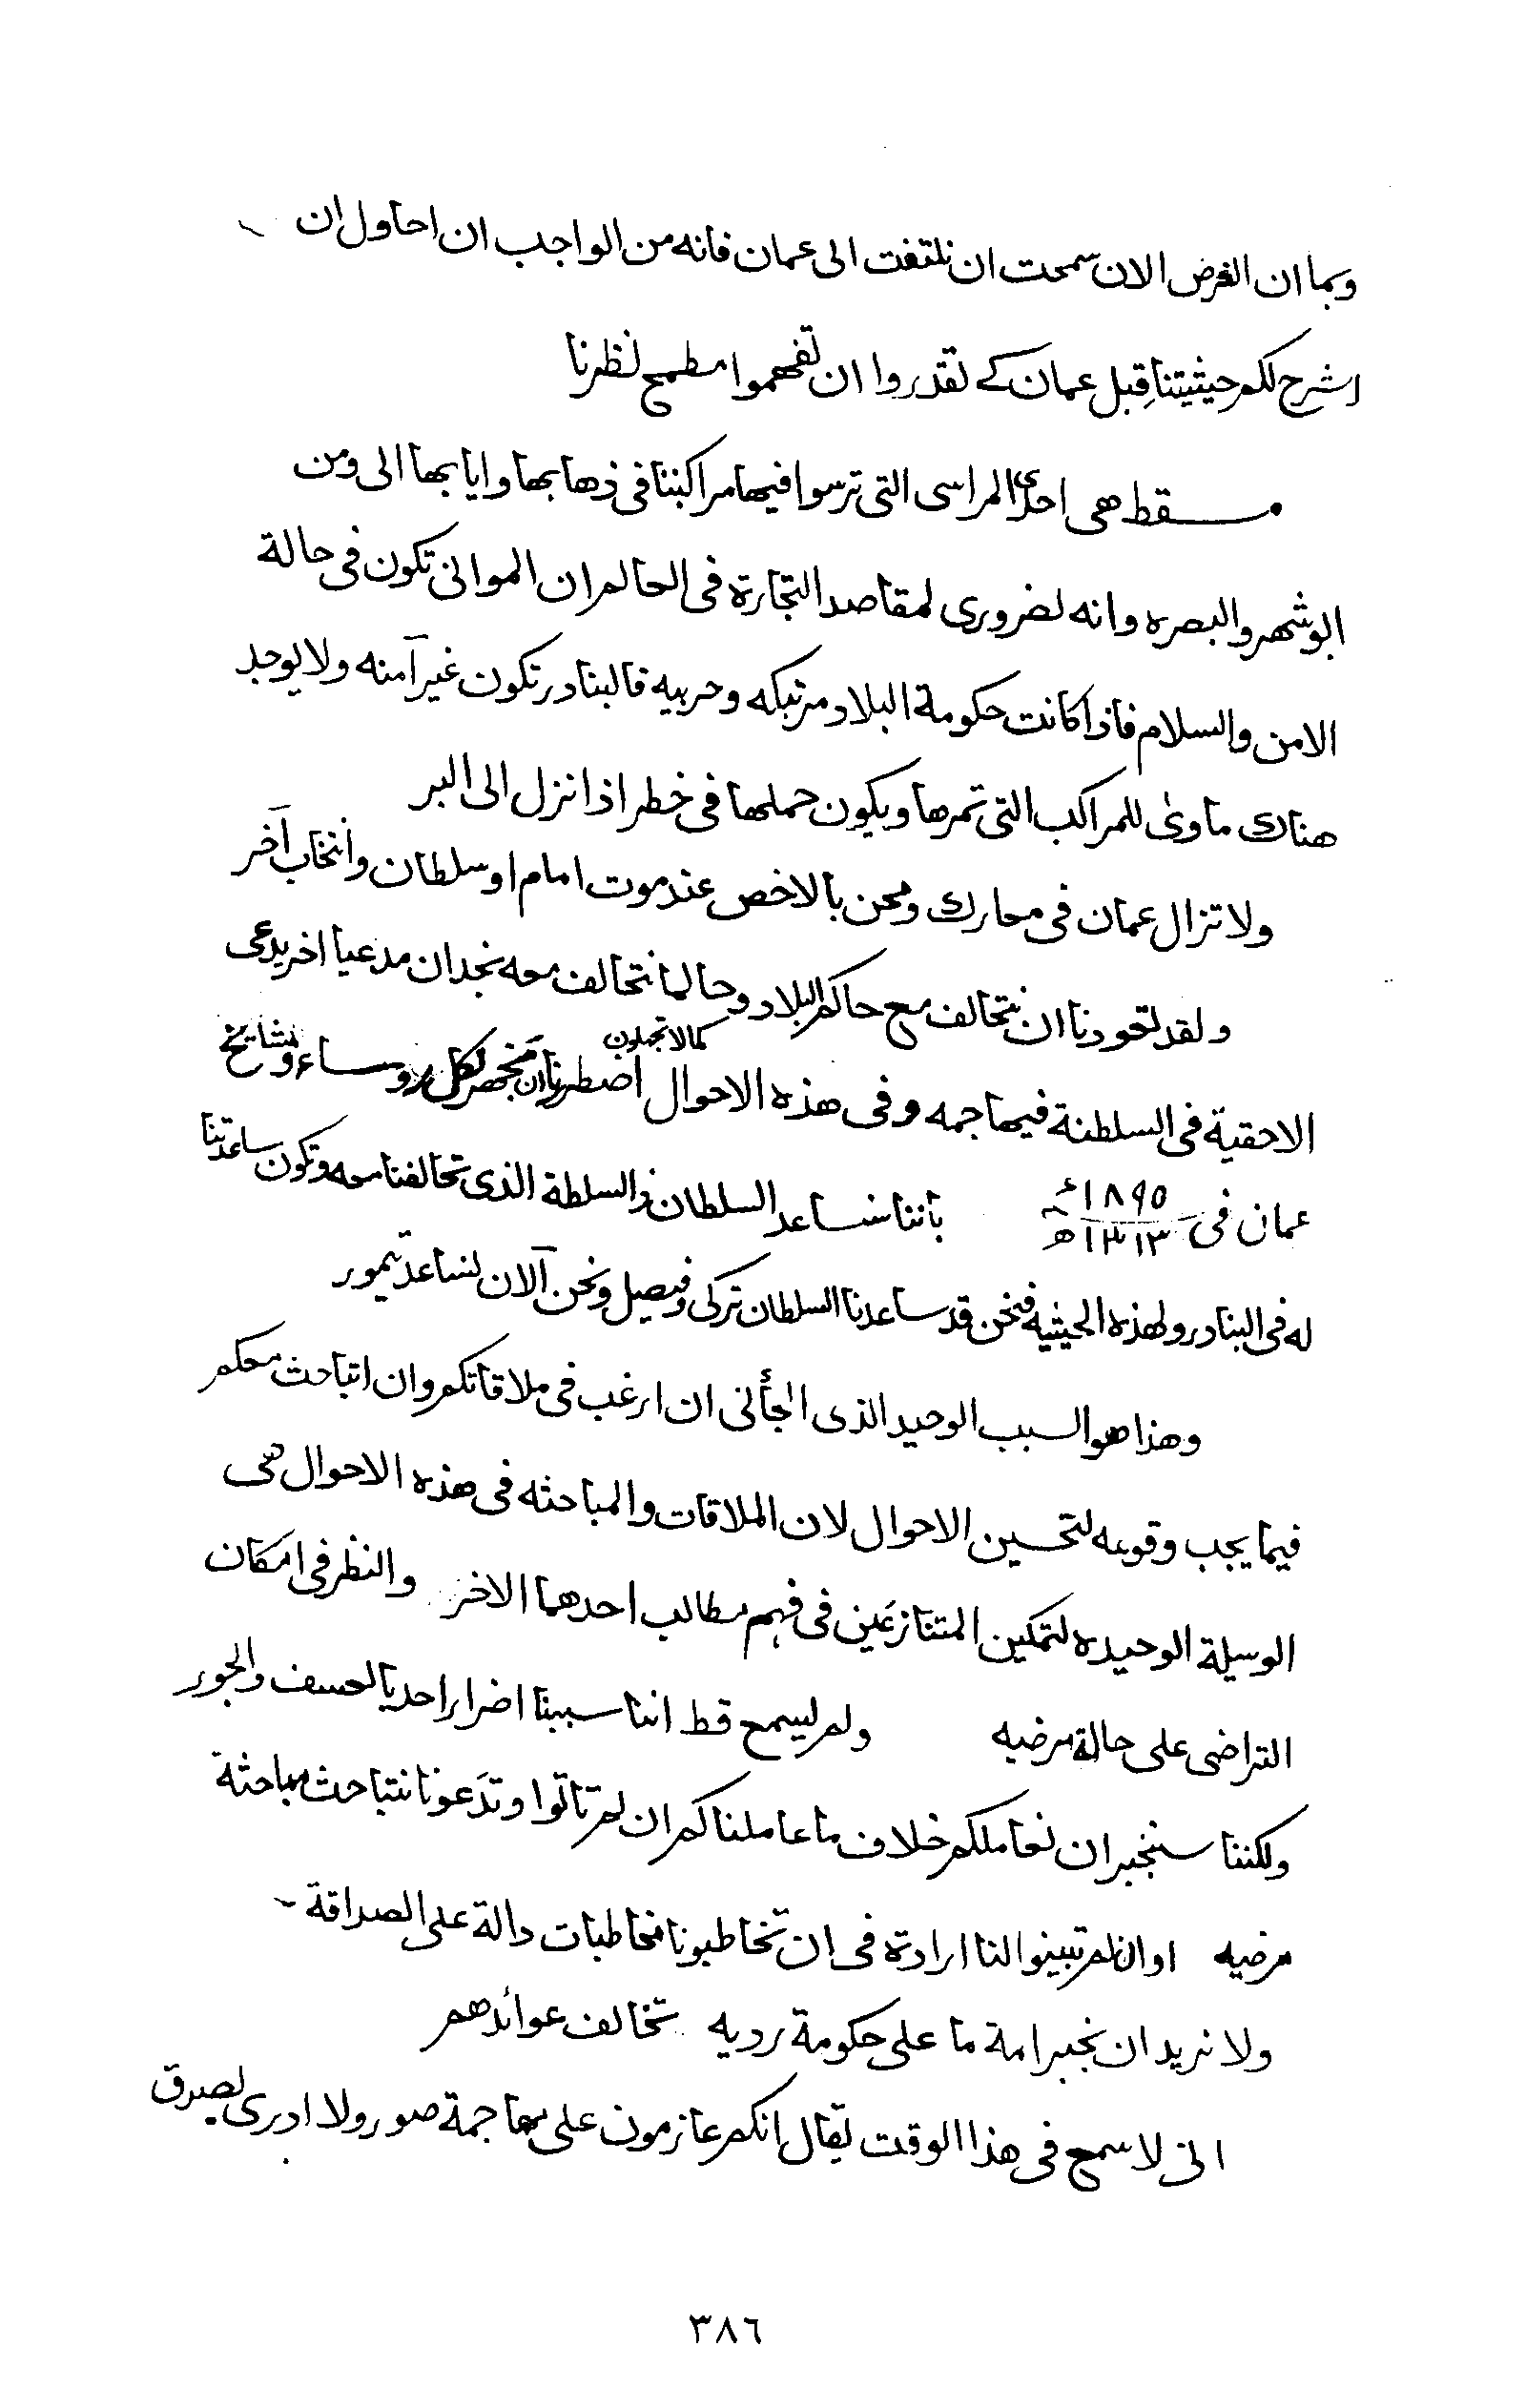 وبما ان الغرض الان سمحت ان نلتفت الى عمان فانه من الواجب ان احاول ان
اشرح لكم حيثيتنا قبل عمان كے تقدروا ان تفهموا مطمح نظرنا
مسقط هى احدى المراسى التى ترسوا فيها مراكبنا فى ذهابها وايابها الى ومن
ابوشهر والبصره وانه لضرورى لمقاصد التجارة فى العالم ان الموانى تكون فى حالة
الامن والسلام فاذا كانت حكومة البلاد مرتبكه وحربيه فالبنادر تكون غير آمنه ولا يوجد
هناك ماوىٰ للمراكب التى تمرها ويكون حملها فى خطر اذا نزل الى البر
ولا تزال عمان فى معارك ومحن بالاخص عند موت امام او سلطان وانتخاب آخر
ولقد تعودنا ان نتحالف مع حاكم البلاد وحالما نتحالف معه نجد ان مدعيا اخر يدعى
كما لا تجهلون
الاحقية فى السلطنة فيهاجمه وفى هذه الاحوال اضطرنا ان نخبر لكل روساء ومشايخ
عمان فى ١٨٩٥ء ١٣١٣ھ باننا نساعد السلطان ذا السلطة الذى تحالفنا معه وتكون مساعدتنا
له فى البنادر ولهذه الحيثيه فنحن قد ساعدنا السلطان تركى وفيصل ونحن آلان نساعد تيمور
وهذا هو السبب الوحيد الذى الجأنى ان ارغب فى ملاقاتكم وان اتباحث معكم
فيما يجب وقوعه لتحسين الاحوال لان الملاقات والمباحثه فى هذه الاحوال هى
الوسيلة الوحيده لتمكين المتنازعَين فى فهم مطالب احدهما الاخر والنظر فى امكان
التراضى على حالة مرضيه ولم يسمح قط اننا سببنا اضرار احد بالعسف والجور
ولكننا سنجبر ان نعاملكم خلاف ما عاملناكم ان لم تاتوا وتدَعونا نتباحث مباحثة
مرضيه او ان لم تبينوا لنا ارادة فى ان تخاطبونا مخاطبات دالة على الصداقة
ولا نريد ان نجبر امة ما على حكومة رديه تخالف عوائدهم
انى لاسمع فى هذا الوقت يقال انكم عازمون على مهاجمة صور ولا ادرى بصدق
٣٨٦